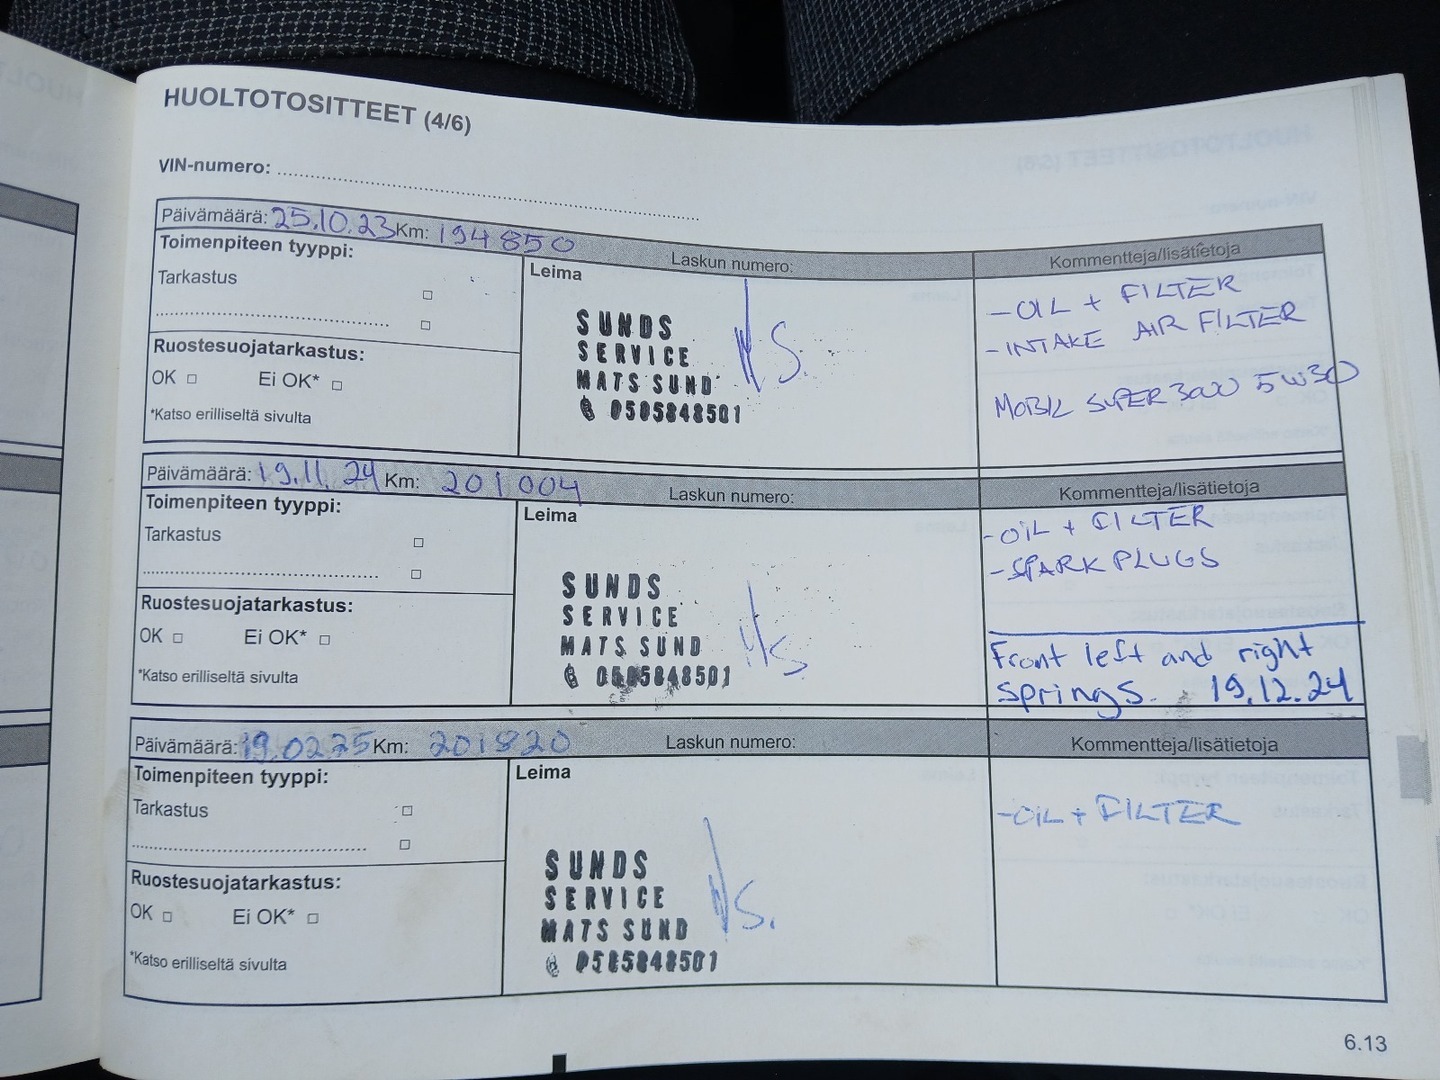 HUOLTOTOSITTEET (4/6)
VIN-numero:
Päivämäärä: 25.10.23 Km: 194 850 Laskun numero: Kommentteja/lisätietoja
Toimenpiteen tyyppi:
Tarkastus
Ruostesuojatarkastus:
OK Ei OK*
*Katso erilliseltä sivulta
Leima
SUNDS
SERVICE
MATS SUND
0505848501
- OIL + FILTER
- INTAKE AIR FILTER
MOBIL SUPER 3000 5W30
Päivämäärä: 19.11.24 Km: 201 004 Laskun numero: Kommentteja/lisätietoja
Toimenpiteen tyyppi:
Tarkastus
Ruostesuojatarkastus:
OK Ei OK*
*Katso erilliseltä sivulta
Leima
SUNDS
SERVICE
MATS SUND
0505848501
- OIL + FILTER
- SPARK PLUGS
Front left and right
springs. 19.12.24
Päivämäärä: 19.02.25 Km: 201820 Laskun numero: Kommentteja/lisätietoja
Toimenpiteen tyyppi:
Tarkastus
Ruostesuojatarkastus:
OK Ei OK*
*Katso erilliseltä sivulta
Leima
SUNDS
SERVICE
MATS SUND
0505848501
- OIL + FILTER
6.13